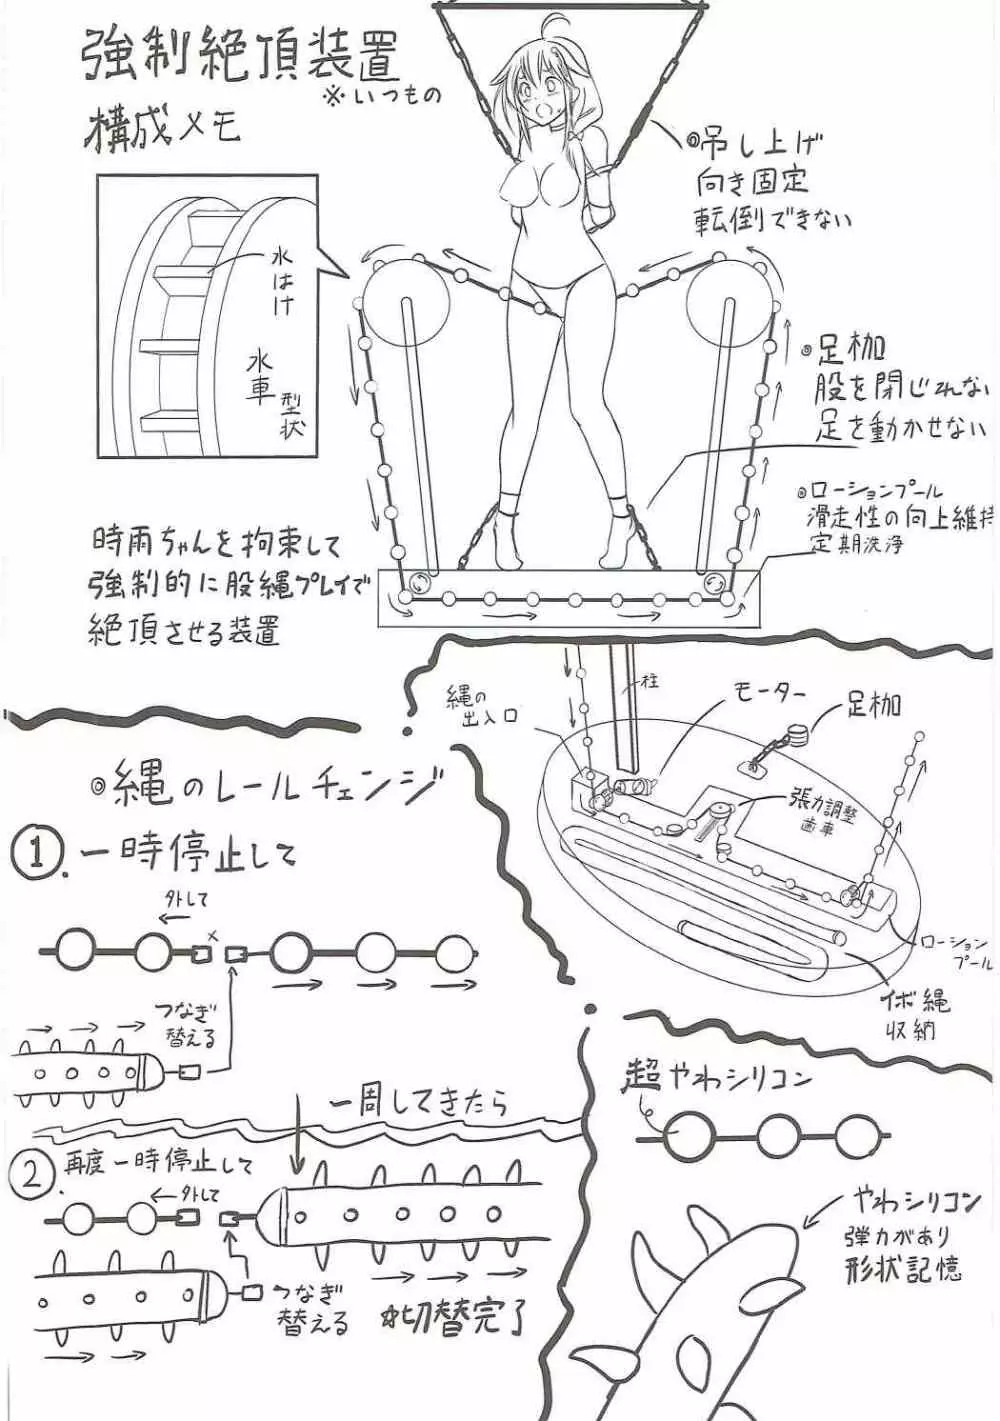 強制絶頂装置
※いつもの
構成メモ
水はけ
水車
型状
◎吊し上げ
向き固定
転倒できない
◎足枷
股を閉じれない
足を動かせない
◎ローションプール
滑走性の向上維持
定期洗浄
時雨ちゃんを拘束して
強制的に股縄プレイで
絶頂させる装置
縄の
出入口
柱
モーター
足枷
張力調整
歯車
ローション
プール
イボ縄
収納
◎縄のレールチェンジ
①.一時停止して
外して
×
つなぎ
替える
一周してきたら
②.再度一時停止して
外して
つなぎ
替える
切替完了
超やわシリコン
やわシリコン
弾力があり
形状記憶